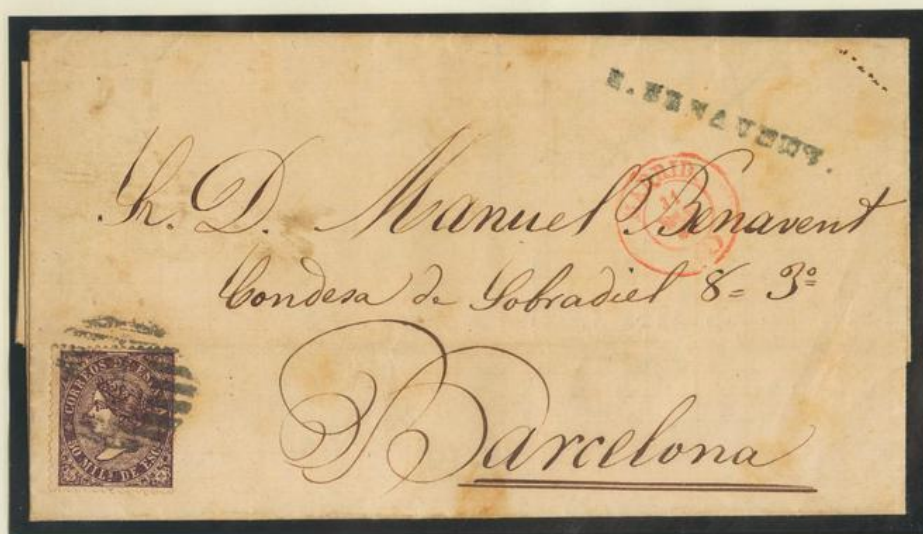 E. BENAVENT.
MADRID
Sr. D. Manuel Benavent
Condesa de Sobradiel 8= 3º
Barcelona
CORREOS DE ES
50 MILS. DE ESC